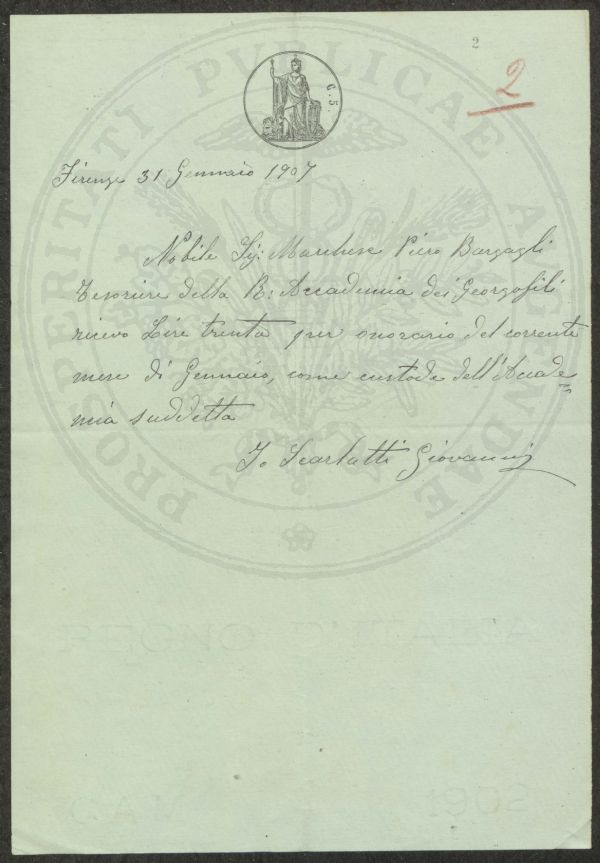 2
2
C. 5.
PROSPERITATI PUBLICAE AUGENDAE
Firenze 31 Gennaio 1907
Nobile Sig: Marchese Piero Bargagli
Tesoriere della R: Accademia dei Georgofili
ricevo Lire trenta per onorario del corrente
mese di Gennaio, come custode dell'Accade=
mia suddetta
Io Scarlatti Giovanni
REGNO D'ITALIA
1902